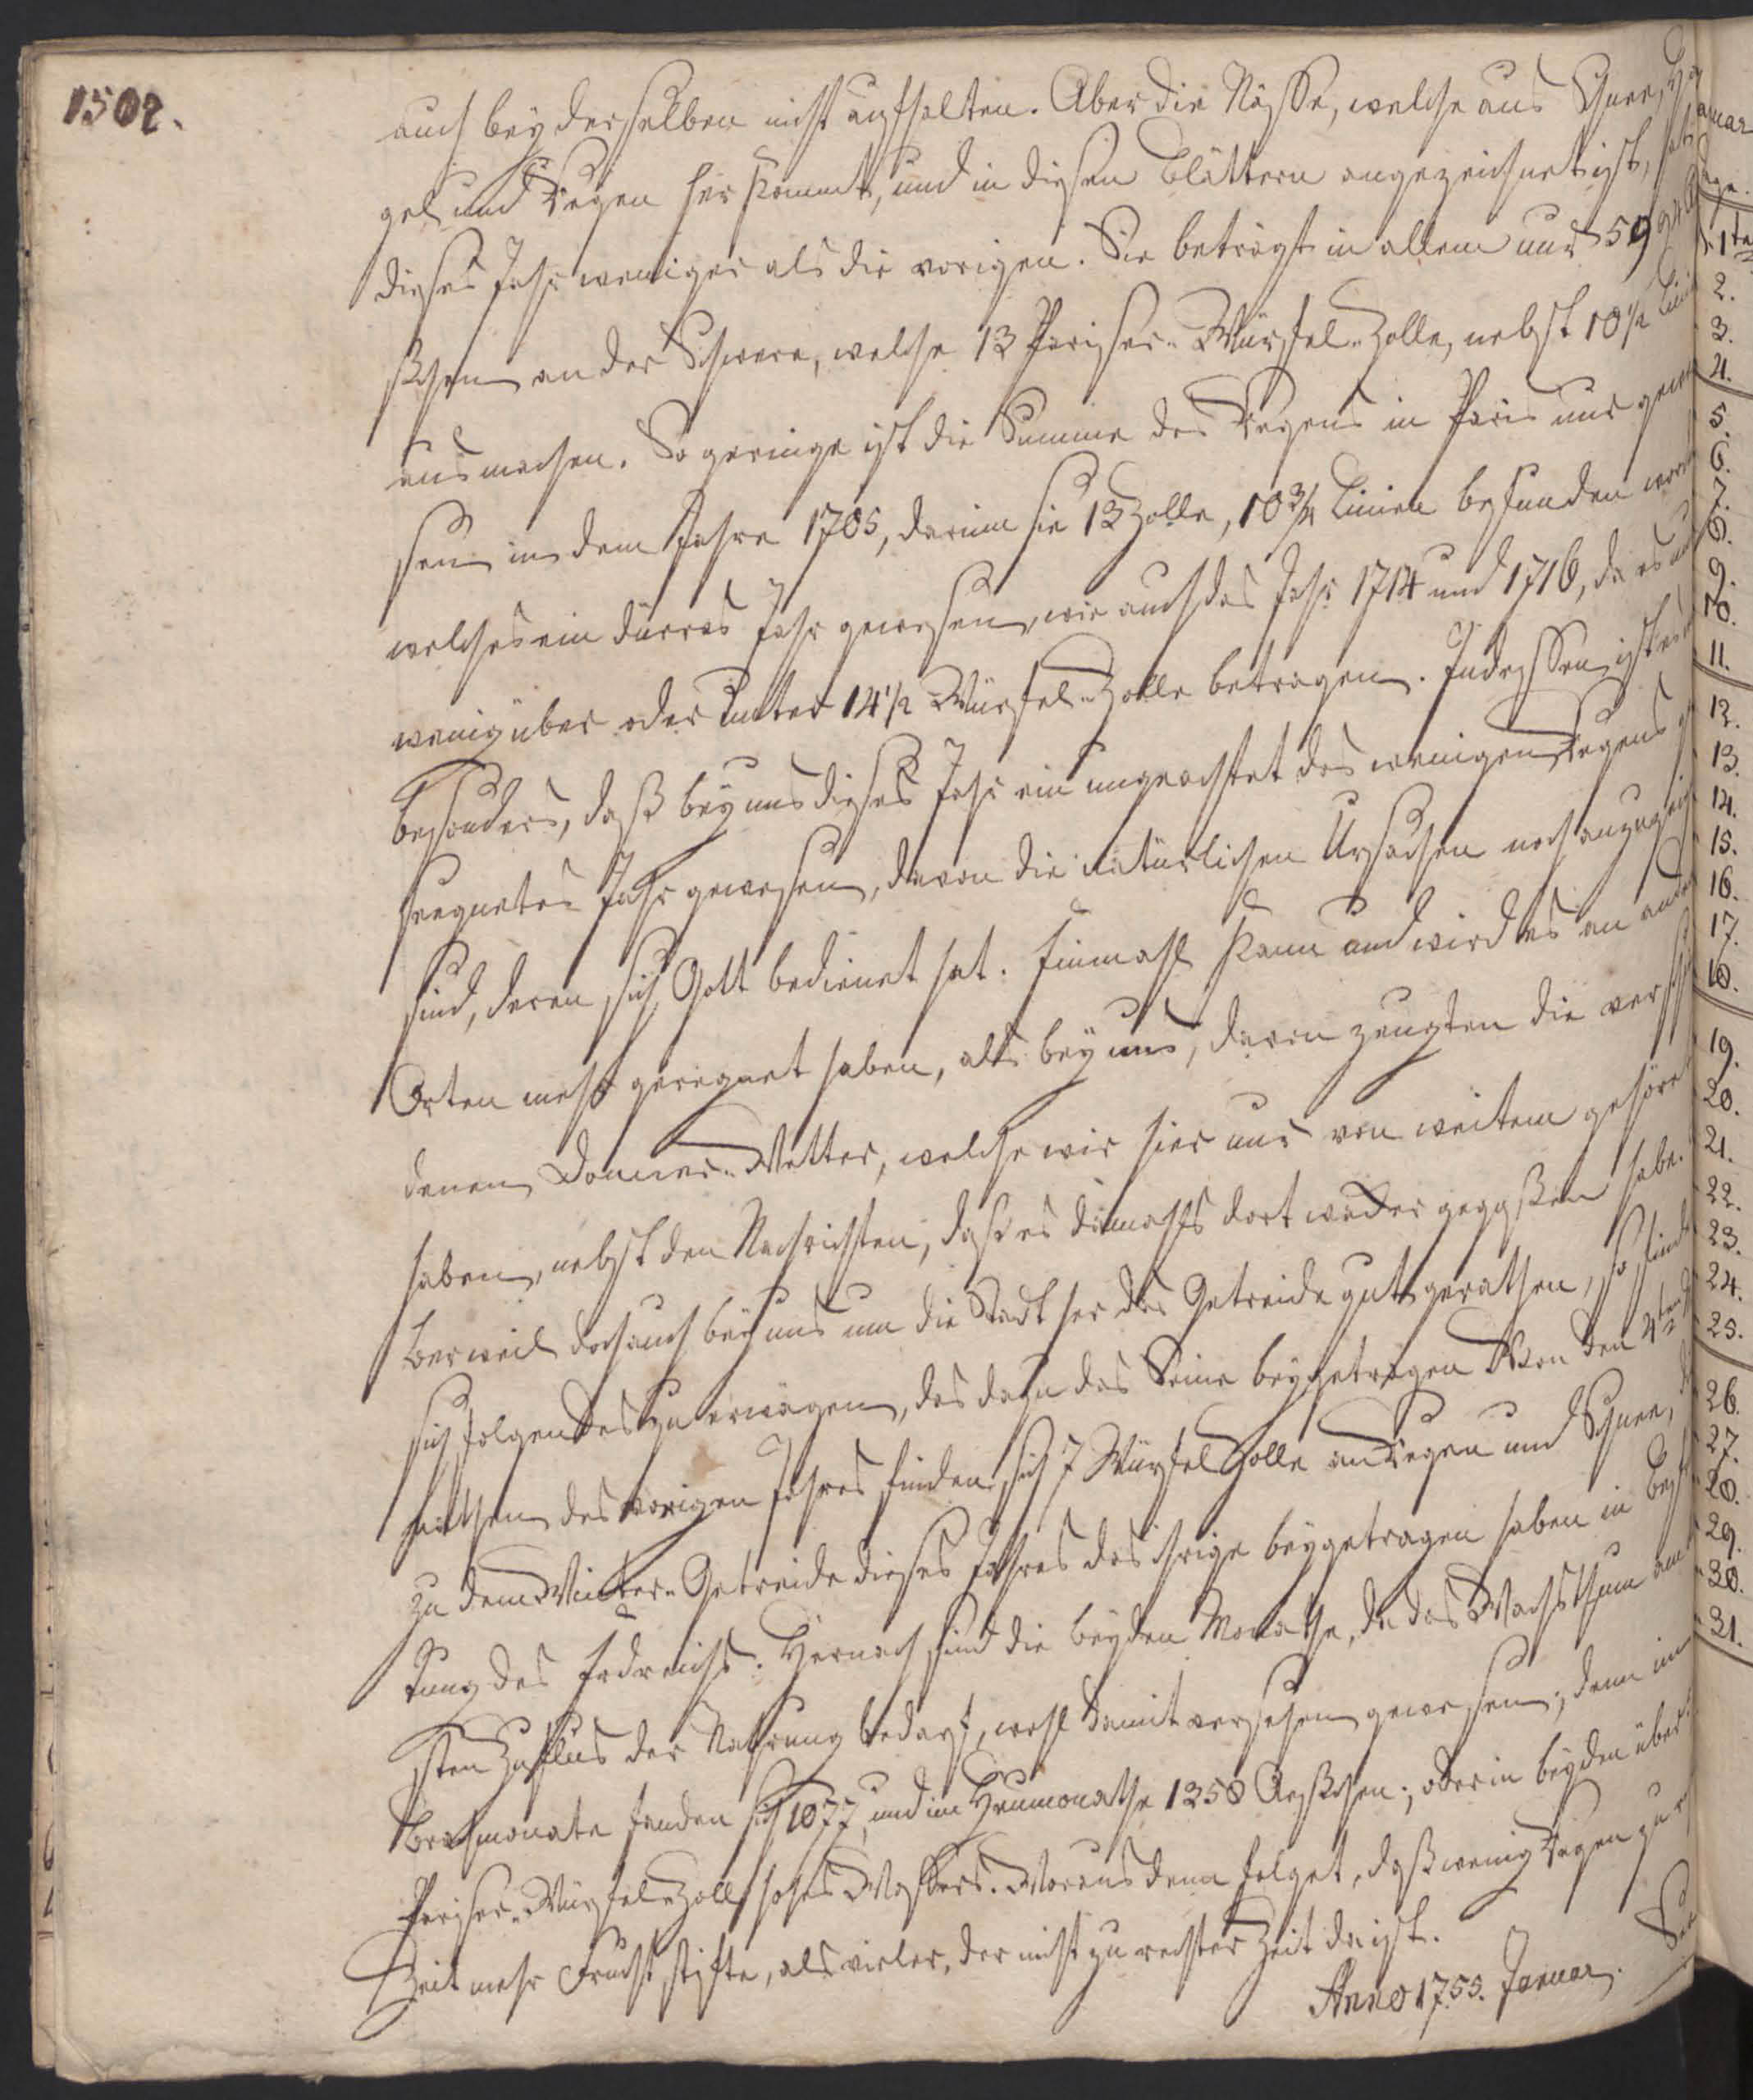 1502.
auch bey derselben nicht aufhalten. Aber die Nässe, welche aus Schnee, Ha
gel und Regen her kommt, und in diesen Blättern angezeichnet ist, hat
dieses Jahr weniger als die vorigen. Sie beträgt in allem nur 59
ßchen an der Schwere, welche 13 Pariser-Würfel-Zolle, nebst 10½ Lini
ausmachen. So geringe ist die Summe des Regens in Paris nur gewe
sen in dem Jahre 1705, darinn sie 13 Zolle, 10¾ Linien befunden word
welches ein dürres Jahr gewesen, wie auch das Jahr 1714 und 1716, da es
wenig über oder unter 14½ Würfel-Zolle betragen. Indessen ist es
besonders, daß bey uns dieses Jahr ein ungeachtet des wenigen Regens ge
seegnetes Jahr gewesen, davon die natürlichen Ursachen noch anzuzeig
sind, deren sich Gott bedienet hat. Einmahl kann und wird es an ander
Orten mehr geregnet haben, als bey uns, davon zeugten die verschie
denen Donner-Wetter, welche wir hier nur von weitem gehöret
haben, nebst den Nachrichten, daß es damahls dort wacker gegoßen habe.
Aberweil doch auch bey uns um die Stadt her das Getreide gut gerathen, so sind
sich folgendes zu erwägen, das dazu das Seine beygetragen. Von den 4ten
nathen des vorigen Jahres finden sich 7 Würfel Zolle an Regen und Schnee, d
zu dem Winter-Getreide dieses Jahres das ihrige beygetragen haben in Befe
tung des Erdreichs. Hernach sind die beyden Monathe, da das Wachsthum am
sten Zufluß der Nahrung bedarf, wohl damit versehen gewesen; denn im
Brachmonate fanden sich 1077, und im Heumonathe 1358 Aeßchen; oder in beyden über
Pariser-Würfel-Zoll hohes Wassers. Woraus denn folget, daß wenig Regen zu r
Zeit mehr Frucht stifte, als vieler, der nicht zu rechter Zeit da ist.
Anno 1755. Januar.
anuar
age.
1te
2.
3.
4.
5.
6.
7.
8.
9.
10.
11.
12.
13.
14.
15.
16.
17.
18.
19.
20.
21.
22.
23.
24.
25.
26.
27.
28.
29.
30.
31.